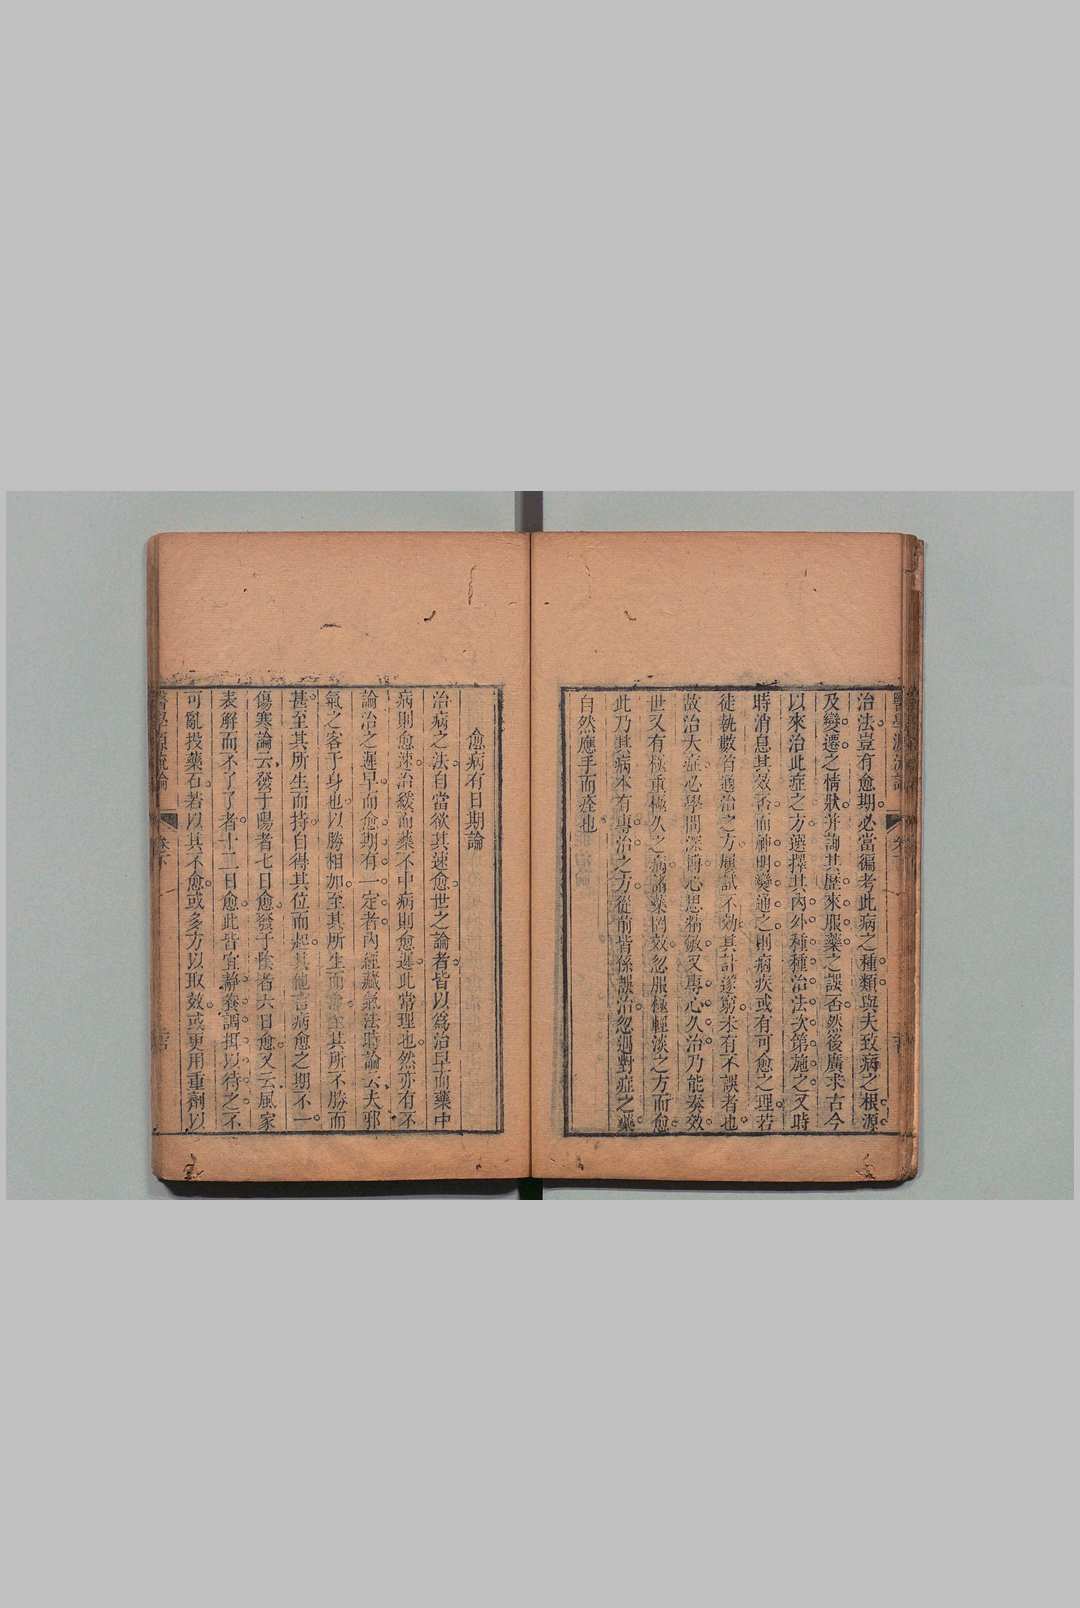 治法豈有愈期必當徧考此病之種類與夫致病之根源
及變遷之情狀并詢其歷來服藥之誤否然後廣求古今
以來治此症之方選擇其內外種種治法次第施之又時
時消息其效否而神明變通之則痼疾或有可愈之理若
徒執數首通治之方屢試不効其計遂窮未有不誤者也
故治大症必學問深博心思精敏又專心久治乃能奏效
世又有極重極久之病諸藥罔效忽服極輕淡之方而愈
此乃其病本有專治之方從前皆係誤治忽遇對症之藥
自然應手而痊也
愈病有日期論
治病之法自當欲其速愈世之論者皆以爲治早而藥中
病則愈速治緩而藥不中病則愈遲此常理也然亦有不
論治之遲早而愈期有一定者內經藏氣法時論云夫邪
氣之客于身也以勝相加至其所生而愈至其所不勝而
甚至其所生而持自得其位而起其他言病愈之期不一
傷寒論云發于陽者七日愈發于陰者六日愈又云風家
表解而不了了者十二日愈此皆宜靜養調攝以待之不
可亂投藥石若以其不愈或多方以取效或更用重劑以
醫學源流論 卷下